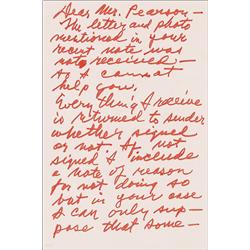 Dear Mr. Pearson –
The letter and photo
mentioned in your
recent note was
not received –
so I cannot
help you.
Everything I receive
is returned to sender
whether signed
or not. If not
signed I include
a note of reason
for not doing so
but in your case
I can only sup-
pose that some –